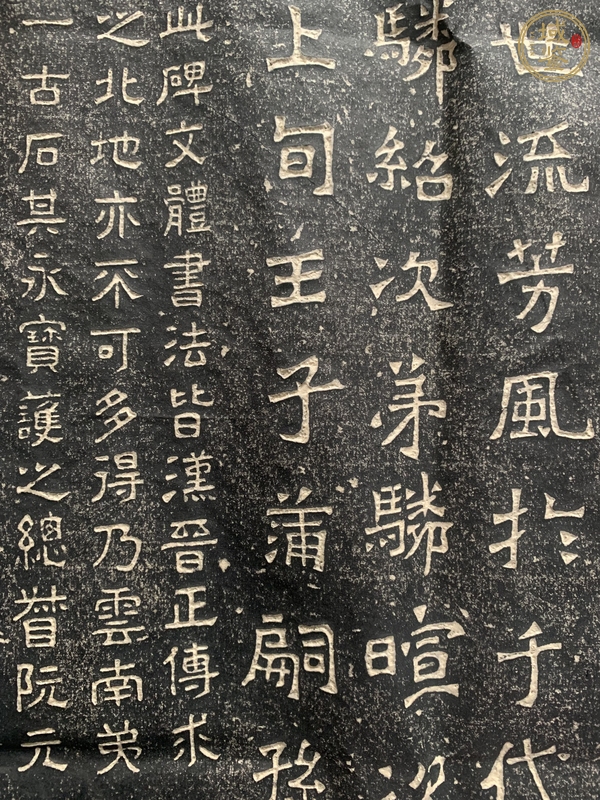 世流芳風於千代
驎紹次弟驎暄次
上旬主子蒲嗣孫
此碑文體書法皆漢晉正傳求
之北地亦不可多得乃雲南弟
一古石其永寶護之總督阮元